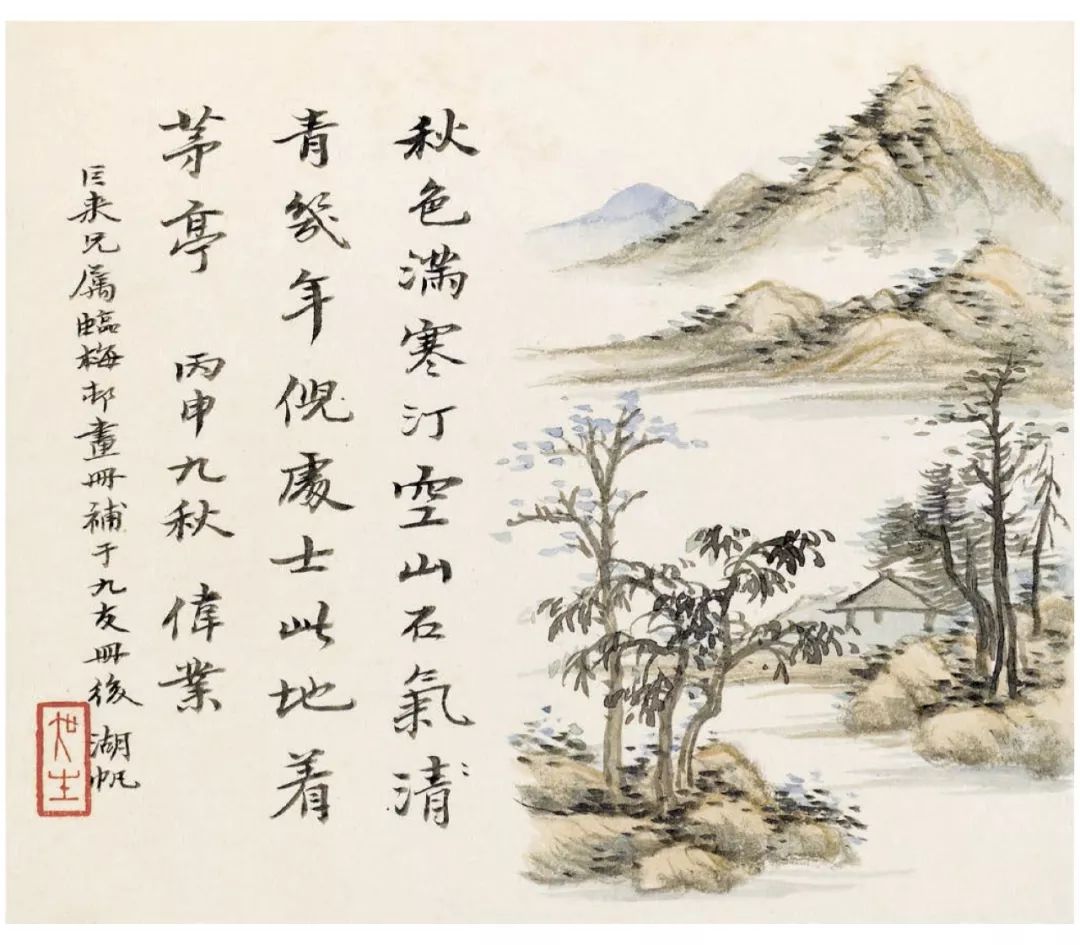 秋色滿寒汀空山石氣清
青幾年倪處士此地着
茅亭 丙申九秋 偉業
巨来兄属臨梅邨畫冊補于九友冊後 湖帆